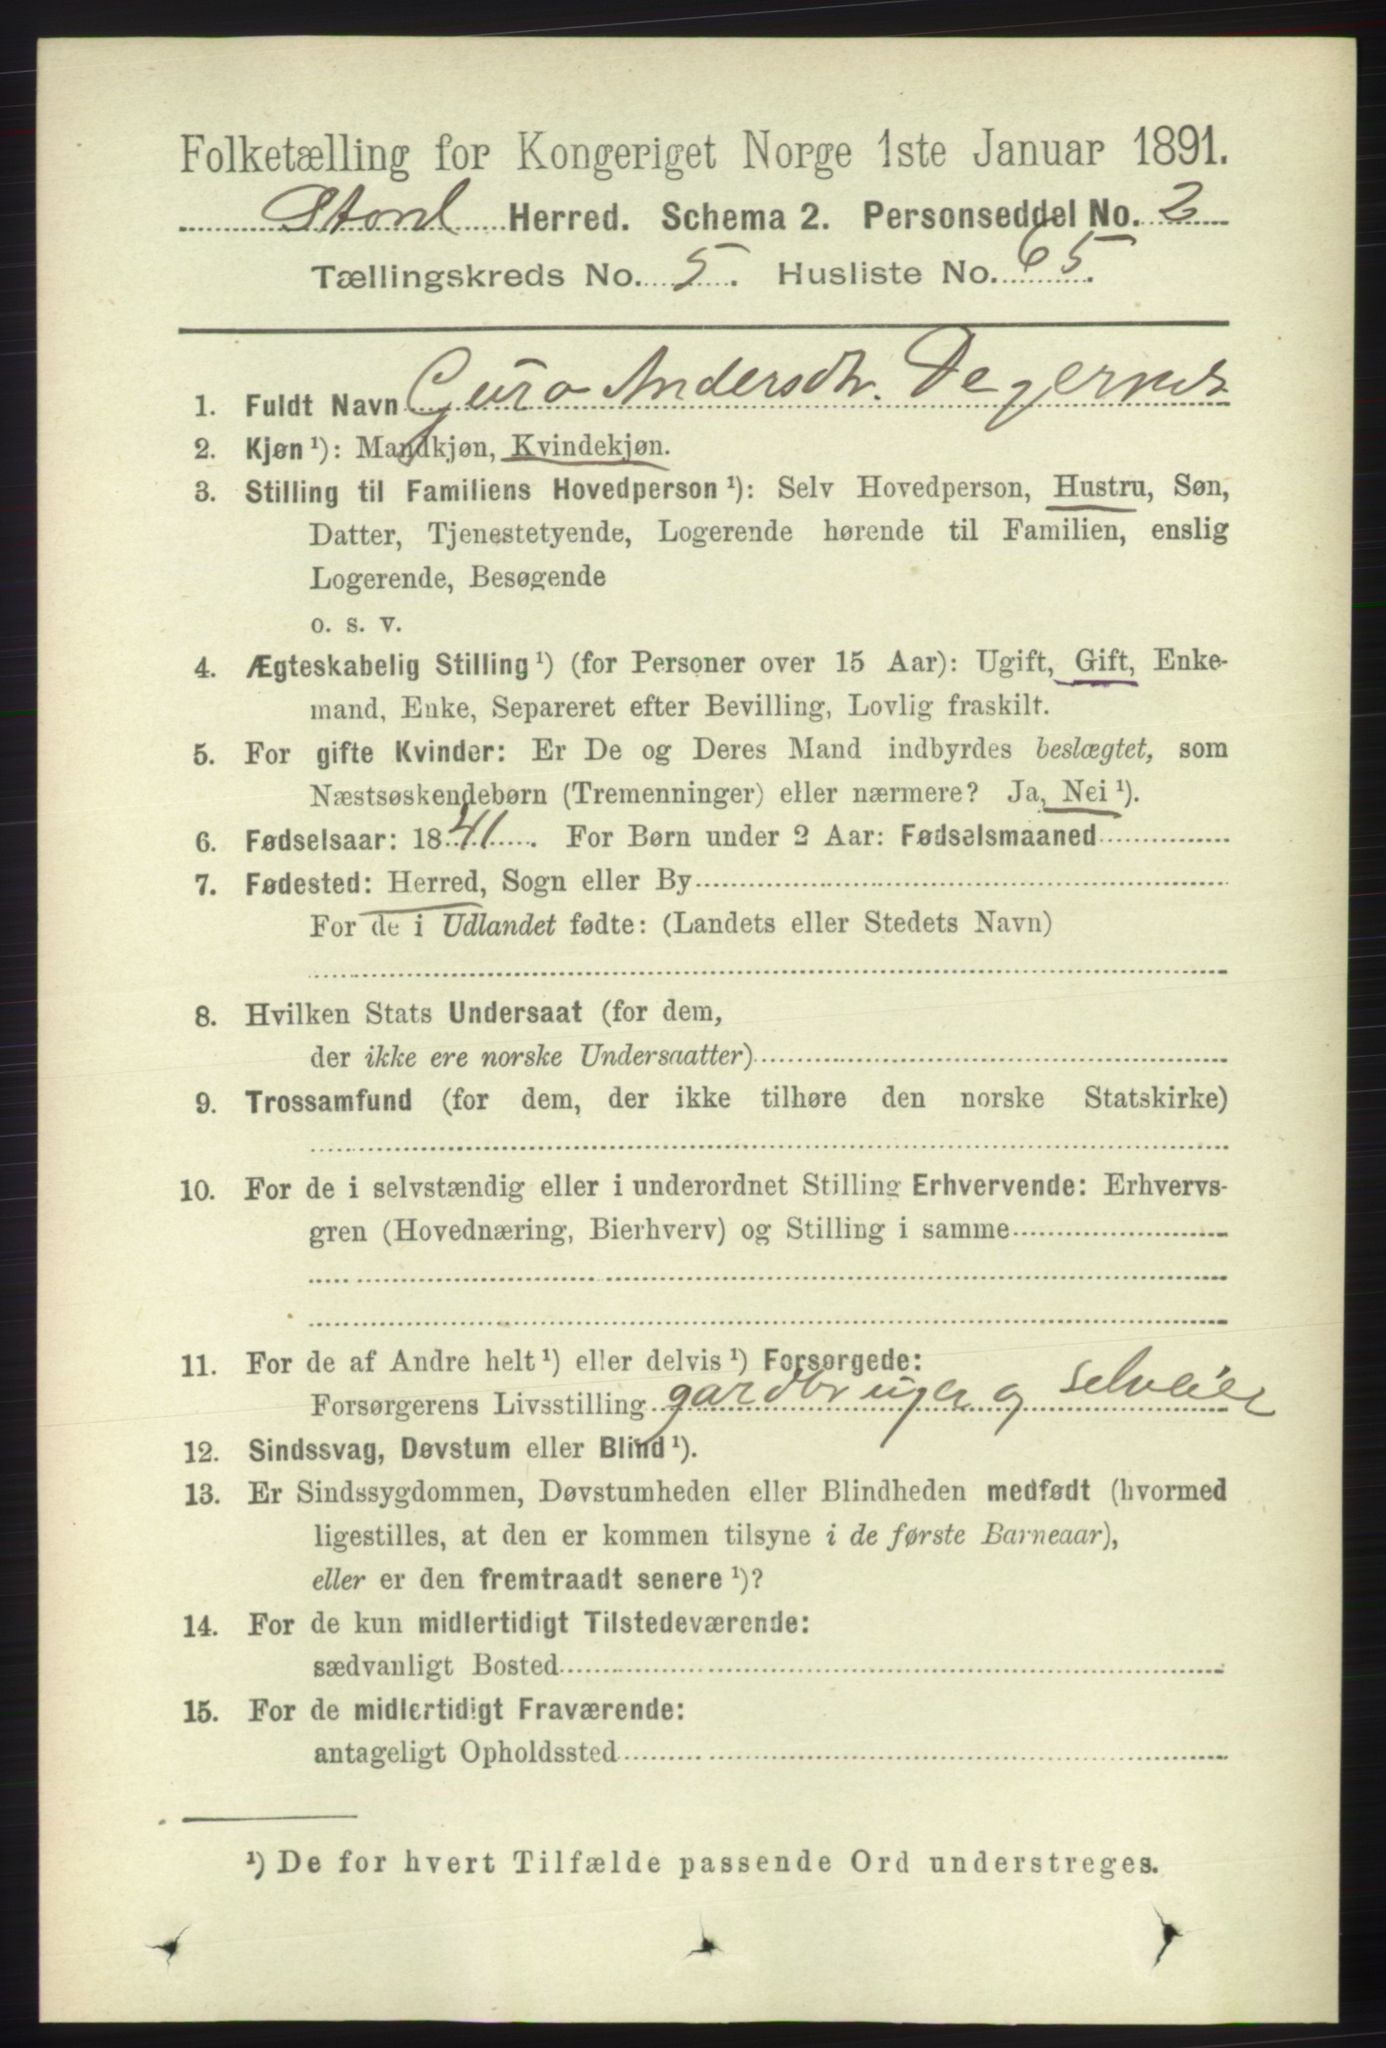 Folketælling for Kongeriget Norge 1ste Januar 1891.
Stord Herred. Schema 2. Personseddel No. 2
Tællingskreds No. 5. Husliste No. 65.
1. Fuldt Navn Guro Andersdtr. Degernes
2. Kjøn ¹): Mandkjøn, Kvindekjøn.
3. Stilling til Familiens Hovedperson ¹): Selv Hovedperson, Hustru, Søn,
Datter, Tjenestetyende, Logerende hørende til Familien, enslig
Logerende, Besøgende
o. s. v.
4. Ægteskabelig Stilling ¹) (for Personer over 15 Aar): Ugift, Gift, Enke-
mand, Enke, Separeret efter Bevilling, Lovlig fraskilt.
5. For gifte Kvinder: Er De og Deres Mand indbyrdes beslægtet, som
Næstsøskendebørn (Tremenninger) eller nærmere? Ja, Nei ¹).
6. Fødselsaar: 1841. For Børn under 2 Aar: Fødselsmaaned
7. Fødested: Herred, Sogn eller By
For de i Udlandet fødte: (Landets eller Stedets Navn)
8. Hvilken Stats Undersaat (for dem,
der ikke ere norske Undersaatter)
9. Trossamfund (for dem, der ikke tilhøre den norske Statskirke)
10. For de i selvstændig eller i underordnet Stilling Erhvervende: Erhvervs-
gren (Hovednæring, Bierhverv) og Stilling i samme
11. For de af Andre helt ¹) eller delvis ¹) Forsørgede:
Forsørgerens Livsstilling gardbruger og selveier
12. Sindssvag, Døvstum eller Blind ¹).
13. Er Sindssygdommen, Døvstumheden eller Blindheden medfødt (hvormed
ligestilles, at den er kommen tilsyne i de første Barneaar),
eller er den fremtraadt senere ¹)?
14. For de kun midlertidigt Tilstedeværende:
sædvanligt Bosted
15. For de midlertidigt Fraværende:
antageligt Opholdssted
¹) De for hvert Tilfælde passende Ord understreges.